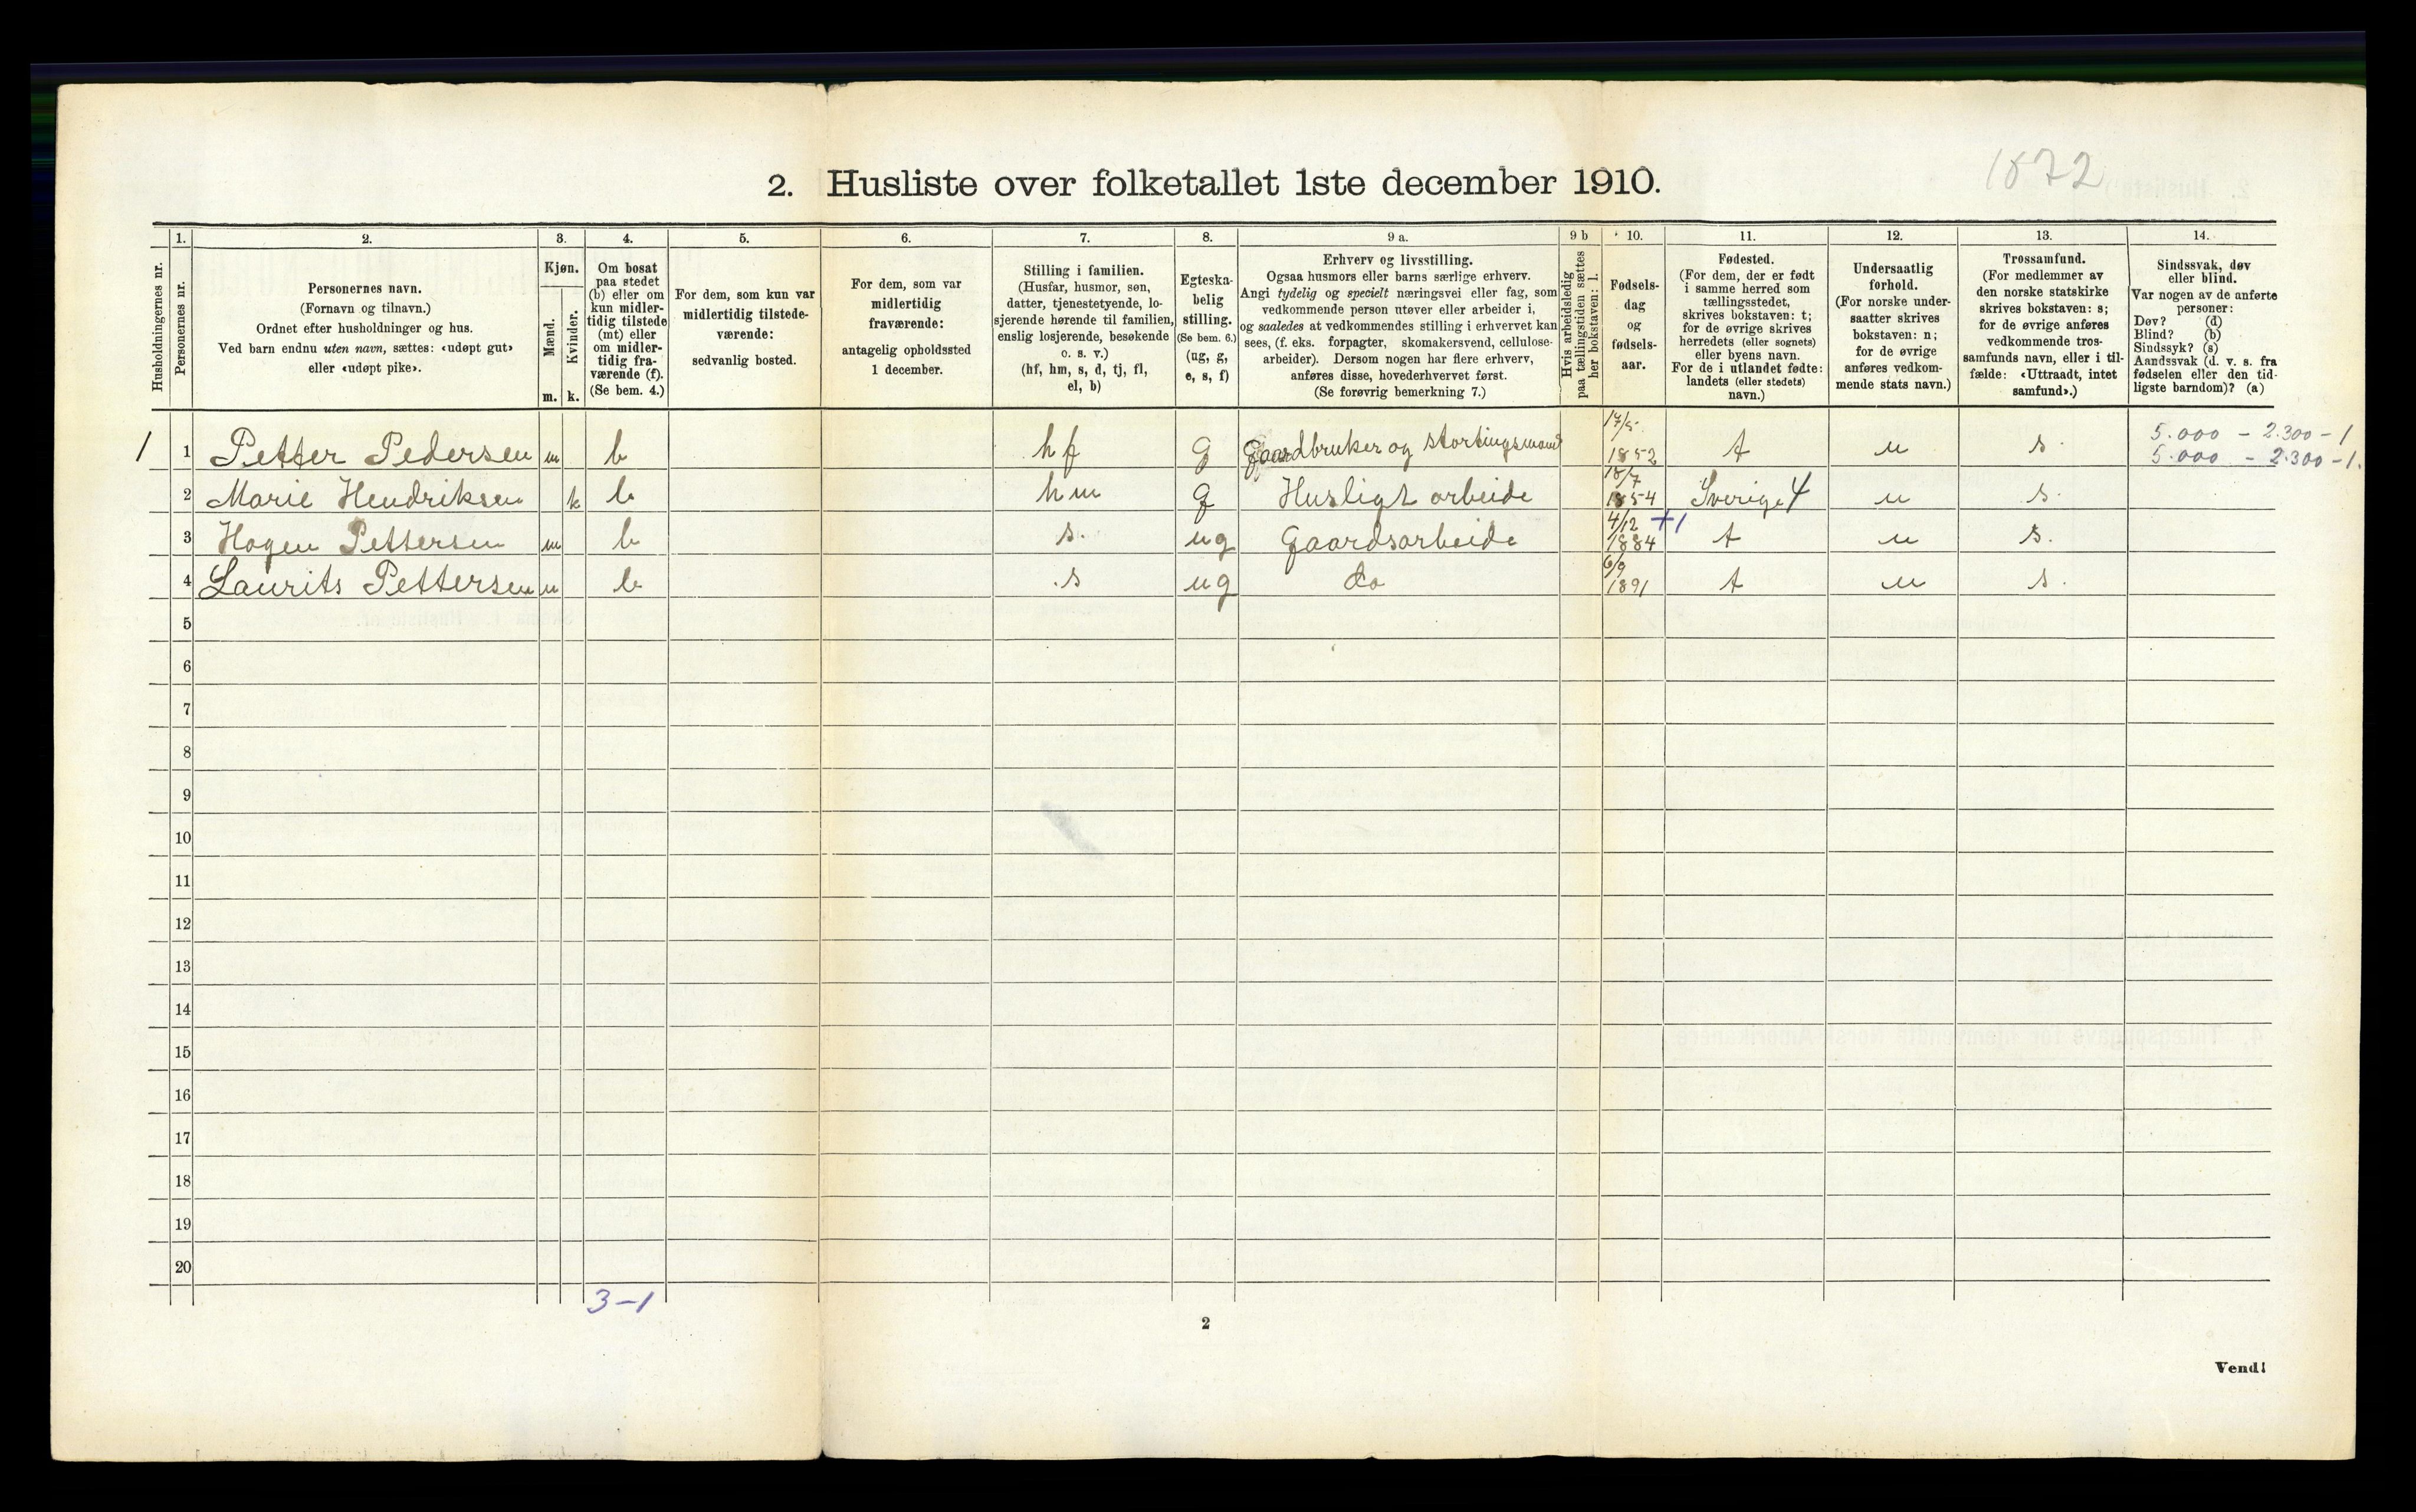 1872
2. Husliste over folketallet 1ste december 1910.
Husholdningernes nr.
1.
Personernes nr.
2.
Personernes navn.
(Fornavn og tilnavn.)
Ordnet efter husholdninger og hus.
Ved barn endnu uten navn, sættes: «udøpt gut»
eller «udøpt pike».
3.
Kjøn.
Mænd.
Kvinder.
m. k.
4.
Om bosat
paa stedet
(b) eller om
kun midler-
tidig tilstede
(mt) eller
om midler-
tidig fra-
værende (f).
(Se bem. 4.)
5.
For dem, som kun var
midlertidig tilstede-
værende:
sedvanlig bosted.
6.
For dem, som var
midlertidig
fraværende:
antagelig opholdssted
1 december.
7.
Stilling i familien.
(Husfar, husmor, søn,
datter, tjenestetyende, lo-
sjerende hørende til familien,
enslig losjerende, besøkende
o. s. v.)
(hf, hm, s, d, tj, fl,
el, b)
8.
Egteska-
belig
stilling.
(Se bem. 6.)
(ug, g,
e, s, f)
9 a.
Erhverv og livsstilling.
Ogsaa husmors eller barns særlige erhverv.
Angi tydelig og specielt næringsvei eller fag, som
vedkommende person utøver eller arbeider i,
og saaledes at vedkommendes stilling i erhvervet kan
sees, (f. eks. forpagter, skomakersvend, cellulose-
arbeider). Dersom nogen har flere erhverv,
anføres disse, hovederhvervet først.
(Se forøvrig bemerkning 7.)
9 b
Hvis arbeidsledig
paa tællingstiden sættes
her bokstaven: l.
10.
Fødsels-
dag
og
fødsels-
aar.
11.
Fødested.
(For dem, der er født
i samme herred som
tællingsstedet,
skrives bokstaven: t;
for de øvrige skrives
herredets (eller sognets)
eller byens navn.
For de i utlandet fødte:
landets (eller stedets)
navn.)
12.
Undersaatlig
forhold.
(For norske under-
saatter skrives
bokstaven: n;
for de øvrige
anføres vedkom-
mende stats navn.)
13.
Trossamfund.
(For medlemmer av
den norske statskirke
skrives bokstaven: s;
for de øvrige anføres
vedkommende tros-
samfunds navn, eller i til-
fælde: «Uttraadt, intet
samfund».)
14.
Sindssvak, døv
eller blind.
Var nogen av de anførte
personer:
Døv? (d)
Blind? (b)
Sindssyk? (s)
Aandssvak (d. v. s. fra
fødselen eller den tid-
ligste barndom)? (a)
1 1 Petter Pedersen m b hf g Gaardbruker og stortingsmand 17/5 1852 t n s. 5.000 - 2.300 - 1
5.000 - 2.300 - 1.
2 Marie Hendriksen k b hm g Husligt arbeide 18/7 1854 Sverige 4 n s.
3 Hagen Pettersen m b s. ug Gaardsarbeide 4/12 +1 1884 t n s.
4 Laurits Pettersen m b s ug do 6/9 1891 t n s.
5
6
7
8
9
10
11
12
13
14
15
16
17
18
19
20
3-1
2
Vend!